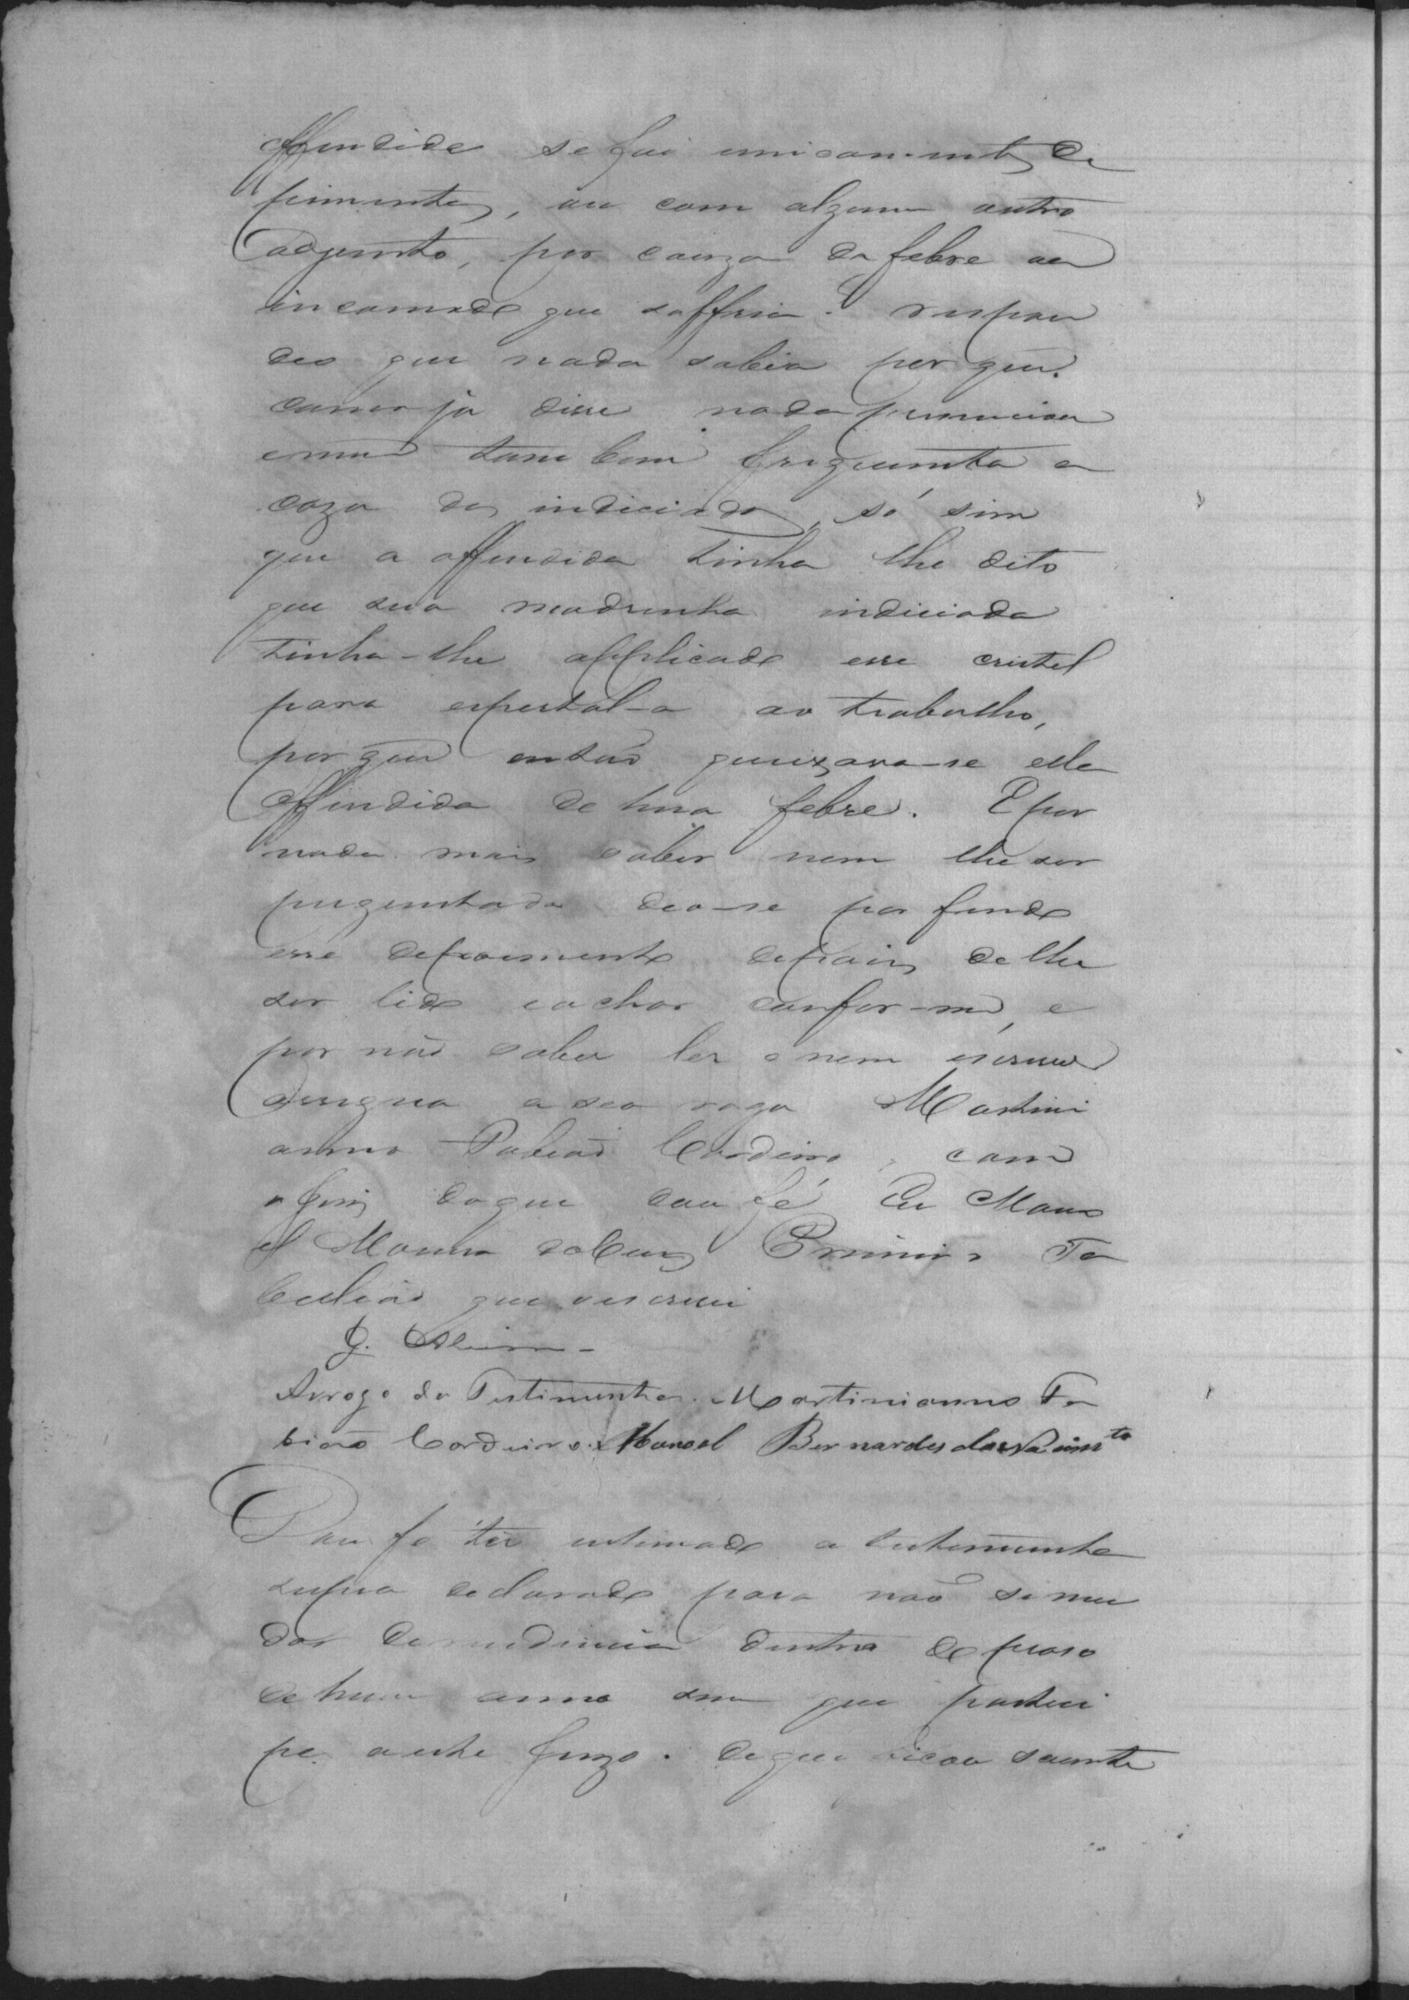 offendida se foi unicamente de
pimenta, ou com algum outro
adjunto, por cauza da febre ou
incomodo que soffria? respon
deo que nada sabia por que
como ja disse nada presenciou
e nem tam bem frequenta a
caza da indiciada, só sim
que a offendida tinha lhe dito
que sua madrinha indiciada
tinha-lhe applicado esse cristel
para espertal-a ao trabalho,
por que então queixava-se ella
offendida de huma febre. E por
nada mais saber nem lhe ser
perguntado deo-se por findo
esse depoimento depois de lhe
ser lido e achar conforme, e
por não saber ler e nem escrever
assigna a seo rogo Martini
anno Fabião Cordeiro, com
o Juiz do que dou fé. Eu Mano
el Maria Primio Ta
bellião que o escrevi
J. Oliveira
Arrogo da Testimunha. Martinianno Fa
bião Cordeiro. Manoel Bernardes do Nacim.to
Dou fé ter intimado a testemunha
supra declarada para não se mu
dar de residencia dentro do praso
de hum anno sem que partici
pe a este Juizo. do que ficou sciente